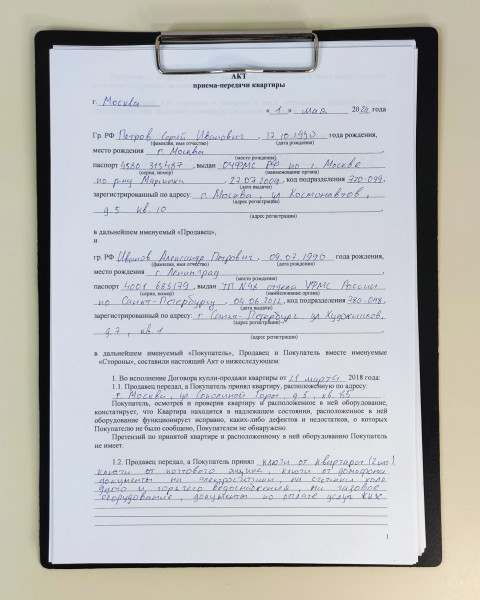 АКТ
приема-передачи квартиры
г. Москва
« 1 » мая 2024 года
Гр. РФ Петров Сергей Иванович, 17.10.1990 года рождения,
(фамилия, имя отчество) (дата рождения)
место рождения г. Москва
(место рождения)
паспорт 4580 313487, выдан ОУФМС РФ по г. Москве
(серия, номер) (наименование органа)
по р-ну Марьинки, 27.07.2009, код подразделения 770-099,
(дата выдачи)
зарегистрированный по адресу: г. Москва, ул Космонавтов,
(адрес регистрации)
д.5 кв 10
(адрес регистрации)
в дальнейшем именуемый «Продавец»,
и
гр. РФ Иванов Александр Петрович, 09.07.1990 года рождения,
(фамилия, имя отчество) (дата рождения)
место рождения г. Ленинград
(место рождения)
паспорт 4001 685179, выдан ТП №48 отдела УФМС России
(серия, номер) (наименование органа)
по Санкт-Петербургу, 04.06.2012, код подразделения 780-048,
(дата выдачи)
зарегистрированный по адресу: г Санкт-Петербург ул Художников,
(адрес регистрации)
д 7, кв. 1
(адрес регистрации)
в дальнейшем именуемый «Покупатель», Продавец и Покупатель вместе именуемые
«Стороны», составили настоящий Акт о нижеследующем
1. Во исполнение Договора купли-продажи квартиры от 11 марта 2018 года:
1.1. Продавец передал, а Покупатель принял квартиру, расположенную по адресу:
г. Москва, ул Соколиной Горы, д 5, кв. 85
Покупатель, осмотрев и проверив квартиру и расположенное в ней оборудование,
констатирует, что Квартира находится в надлежащем состоянии, расположенное в ней
оборудование функционирует исправно, каких-либо дефектов и недостатков, о которых
Покупателю не было сообщено, Покупателем не обнаружено.
Претензий по принятой квартире и расположенному в ней оборудованию Покупатель
не имеет.
1.2. Продавец передал, а Покупатель принял ключи от квартиры (2шт)
ключи от почтового ящика, ключи от домофона
документы на электросчетчики, на счетчики холо
дного и горячего водоснабжения, на газовое
оборудование, документы по оплате услуг ЖКХ
1